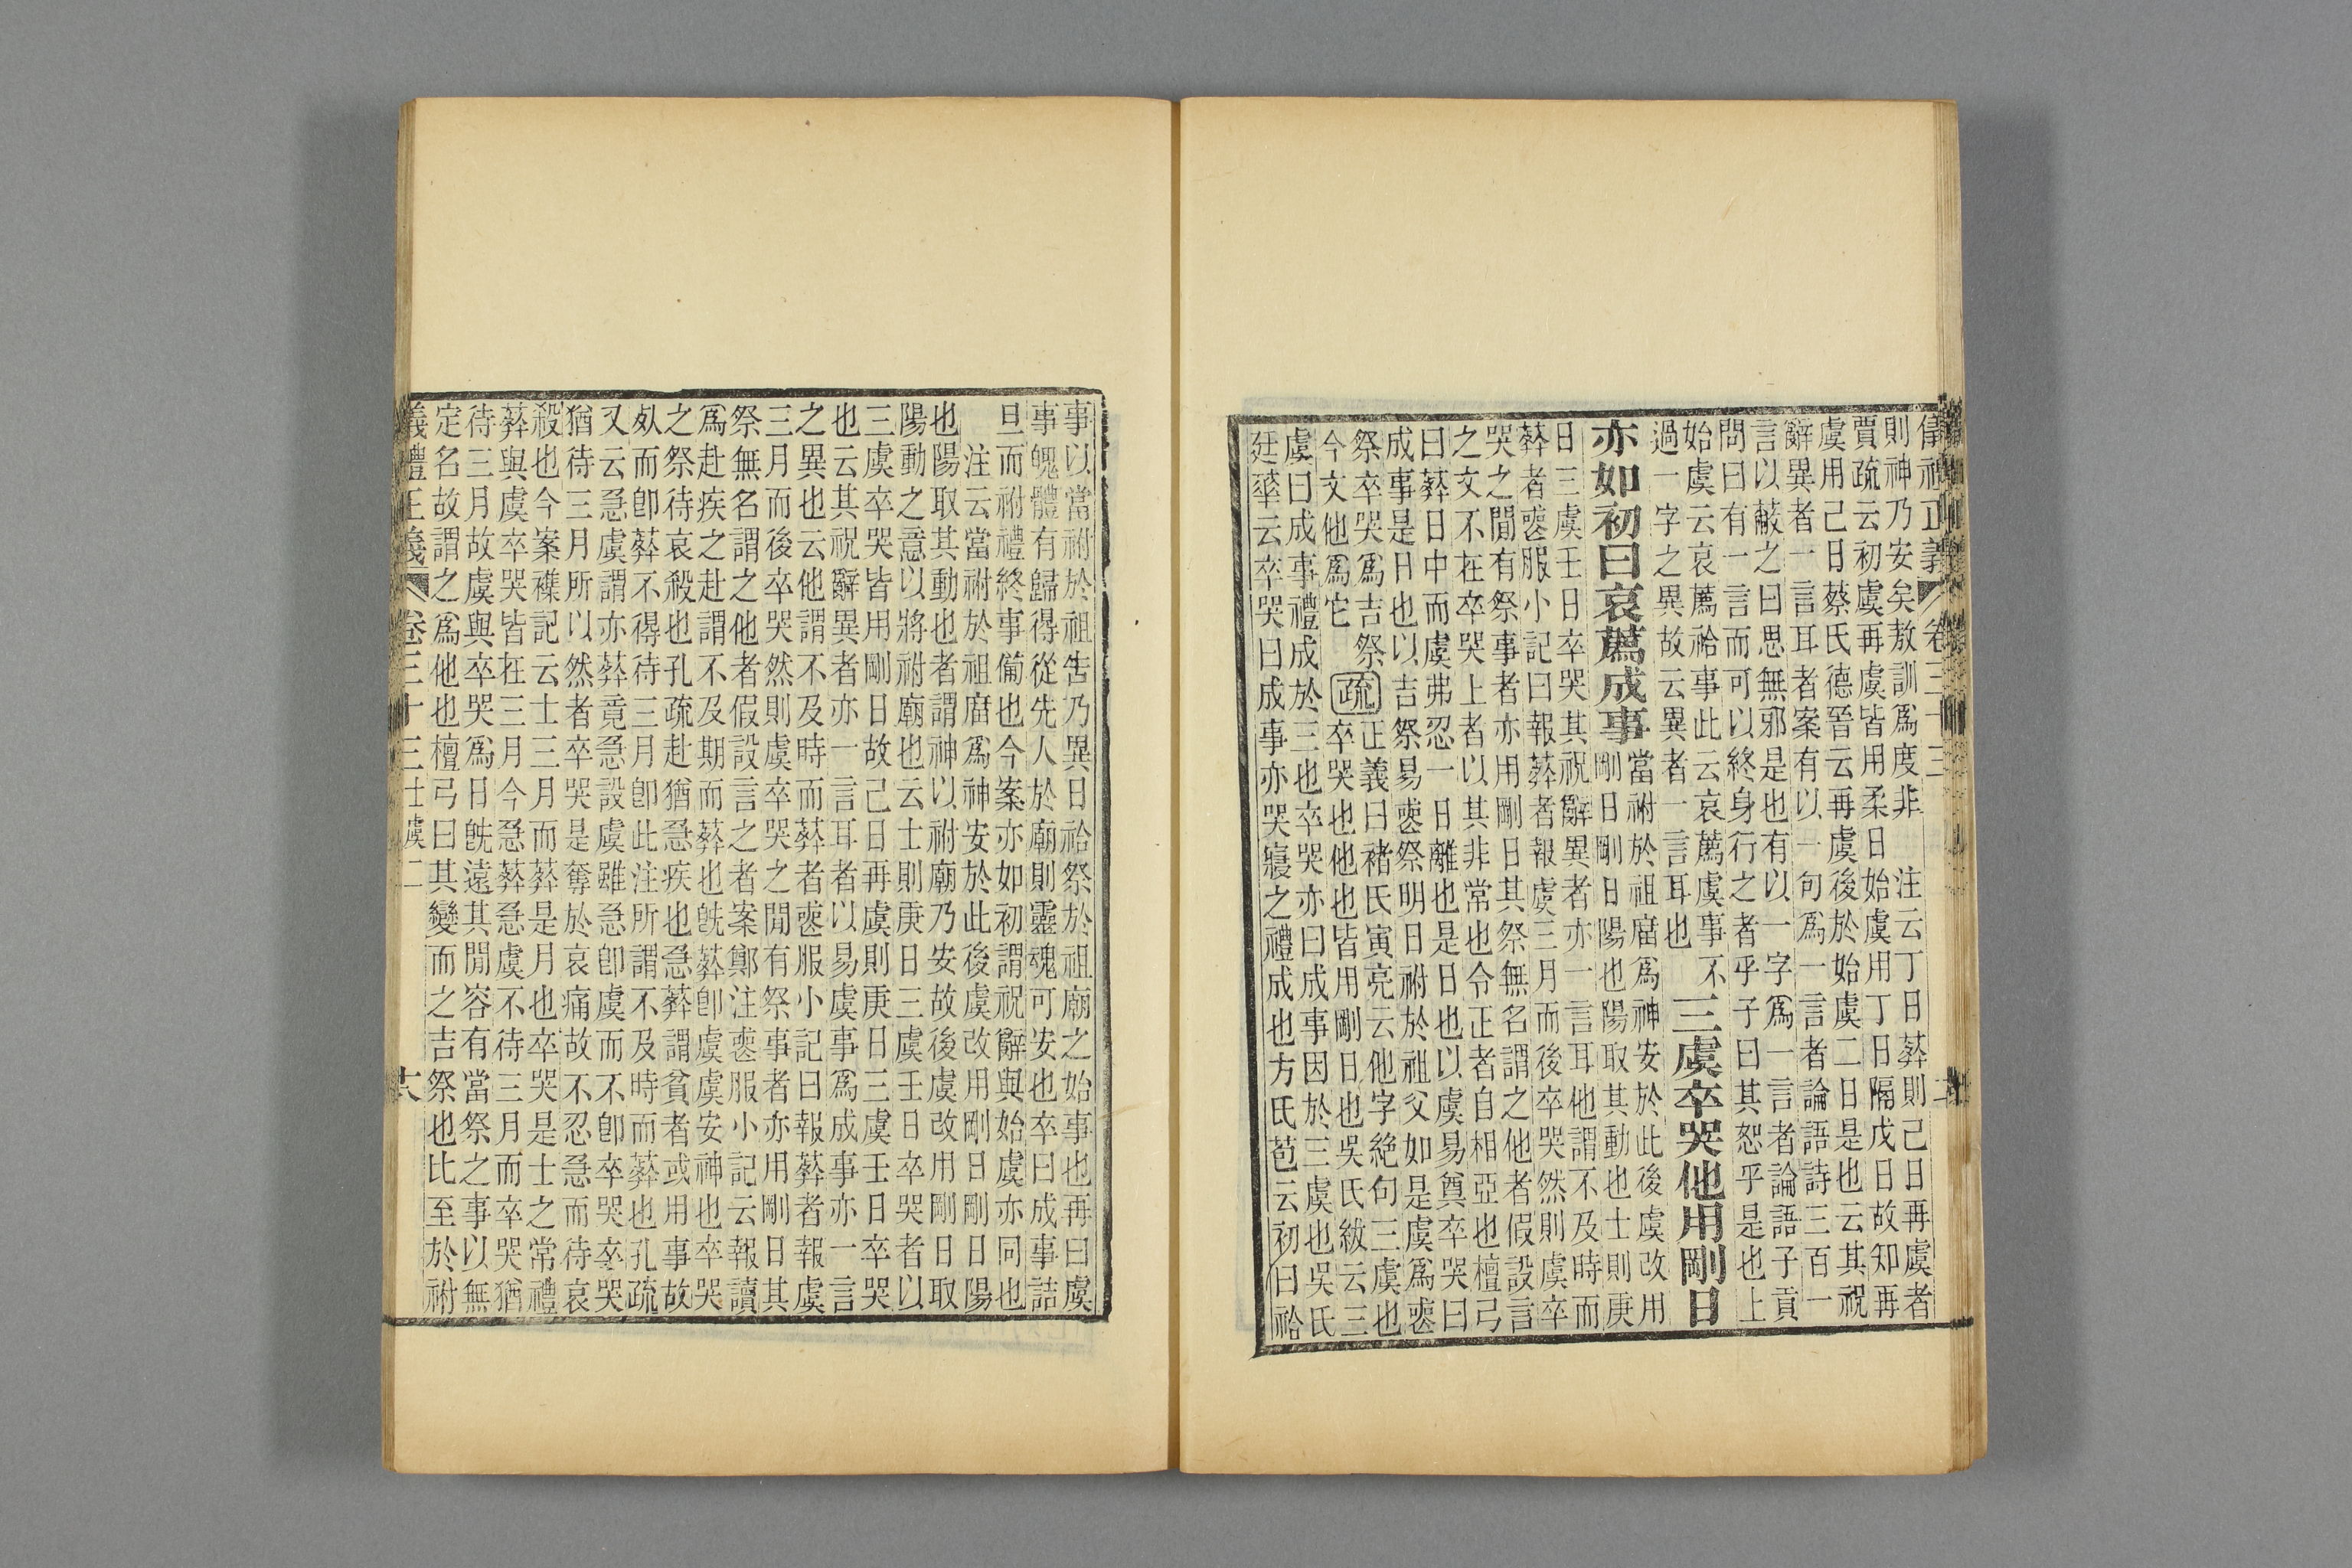 儀禮正義 卷三十三
則神乃安矣敖訓爲度非　注云丁日葬則己日再虞者
賈疏云初虞再虞皆用柔日始虞用丁日隔戊日故知再
虞用己日蔡氏德晉云再虞後於始虞二日是也云其祝
辭異者一言耳者案有以一句爲一言者論語詩三百一
言以蔽之曰思無邪是也有以一字爲一言者論語子貢
問曰有一言而可以終身行之者乎子曰其恕乎是也上
始虞云哀薦祫事此云哀薦虞事不
過一字之異故云異者一言耳也
三虞卒哭他用剛日
亦如初曰哀薦成事
當祔於祖廟爲神安於此後虞改用
剛日剛日陽也陽取其動也士則庚
日三虞壬日卒哭其祝辭異者亦一言耳他謂不及時而
葬者喪服小記曰報葬者報虞三月而後卒哭然則虞卒
哭之閒有祭事者亦用剛日其祭無名謂之他者假設言
之文不在卒哭上者以其非常也令正者自相亞也檀弓
曰葬日中而虞弗忍一日離也是日也以虞易奠卒哭曰
成事是日也以吉祭易喪祭明日祔於祖父如是虞爲喪
祭卒哭爲吉祭
今文他爲它
疏
正義曰褚氏寅亮云他字絶句三虞也
卒哭也他也皆用剛日也吳氏紱云三
虞曰成事禮成於三也卒哭亦曰成事因於三虞也吳氏
廷華云卒哭曰成事亦哭寢之禮成也方氏苞云初曰祫
事以當祔於祖告乃異日祫祭於祖廟之始事也再曰虞
事魄體有歸得從先人於廟則靈魂可安也卒曰成事詰
旦而祔禮終事備也今案亦如初謂祝辭與始虞亦同也
注云當祔於祖廟爲神安於此後虞改用剛日剛日陽
也陽取其動也者謂神以祔廟乃安故後虞改用剛日取
陽動之意以將祔廟也云士則庚日三虞壬日卒哭者以
三虞卒哭皆用剛日故己日再虞則庚日三虞壬日卒哭
也云其祝辭異者亦一言耳者以易虞事爲成事亦一言
之異也云他謂不及時而葬者喪服小記曰報葬者報虞
三月而後卒哭然則虞卒哭之閒有祭事者亦用剛日其
祭無名謂之他者假設言之者案鄭注喪服小記云報讀
爲赴疾之赴謂不及期而葬也旣葬卽虞虞安神也卒哭
之祭待哀殺也孔疏赴猶急疾也急葬謂貧者或用事故
死而卽葬不得待三月卽此注所謂不及時而葬也孔疏
又云急虞謂亦葬竟急設虞雖急卽虞而不卽卒哭卒哭
猶待三月所以然者卒哭是奪於哀痛故不忍急而待哀
殺也今案襍記云士三月而葬是月也卒哭是士之常禮
葬與虞卒哭皆在三月今急葬急虞不待三月而卒哭猶
待三月故虞與卒哭爲日旣遠其閒容有當祭之事以無
定名故謂之爲他也檀弓曰其變而之吉祭也比至於祔
義禮正義 卷三十三 士虞二